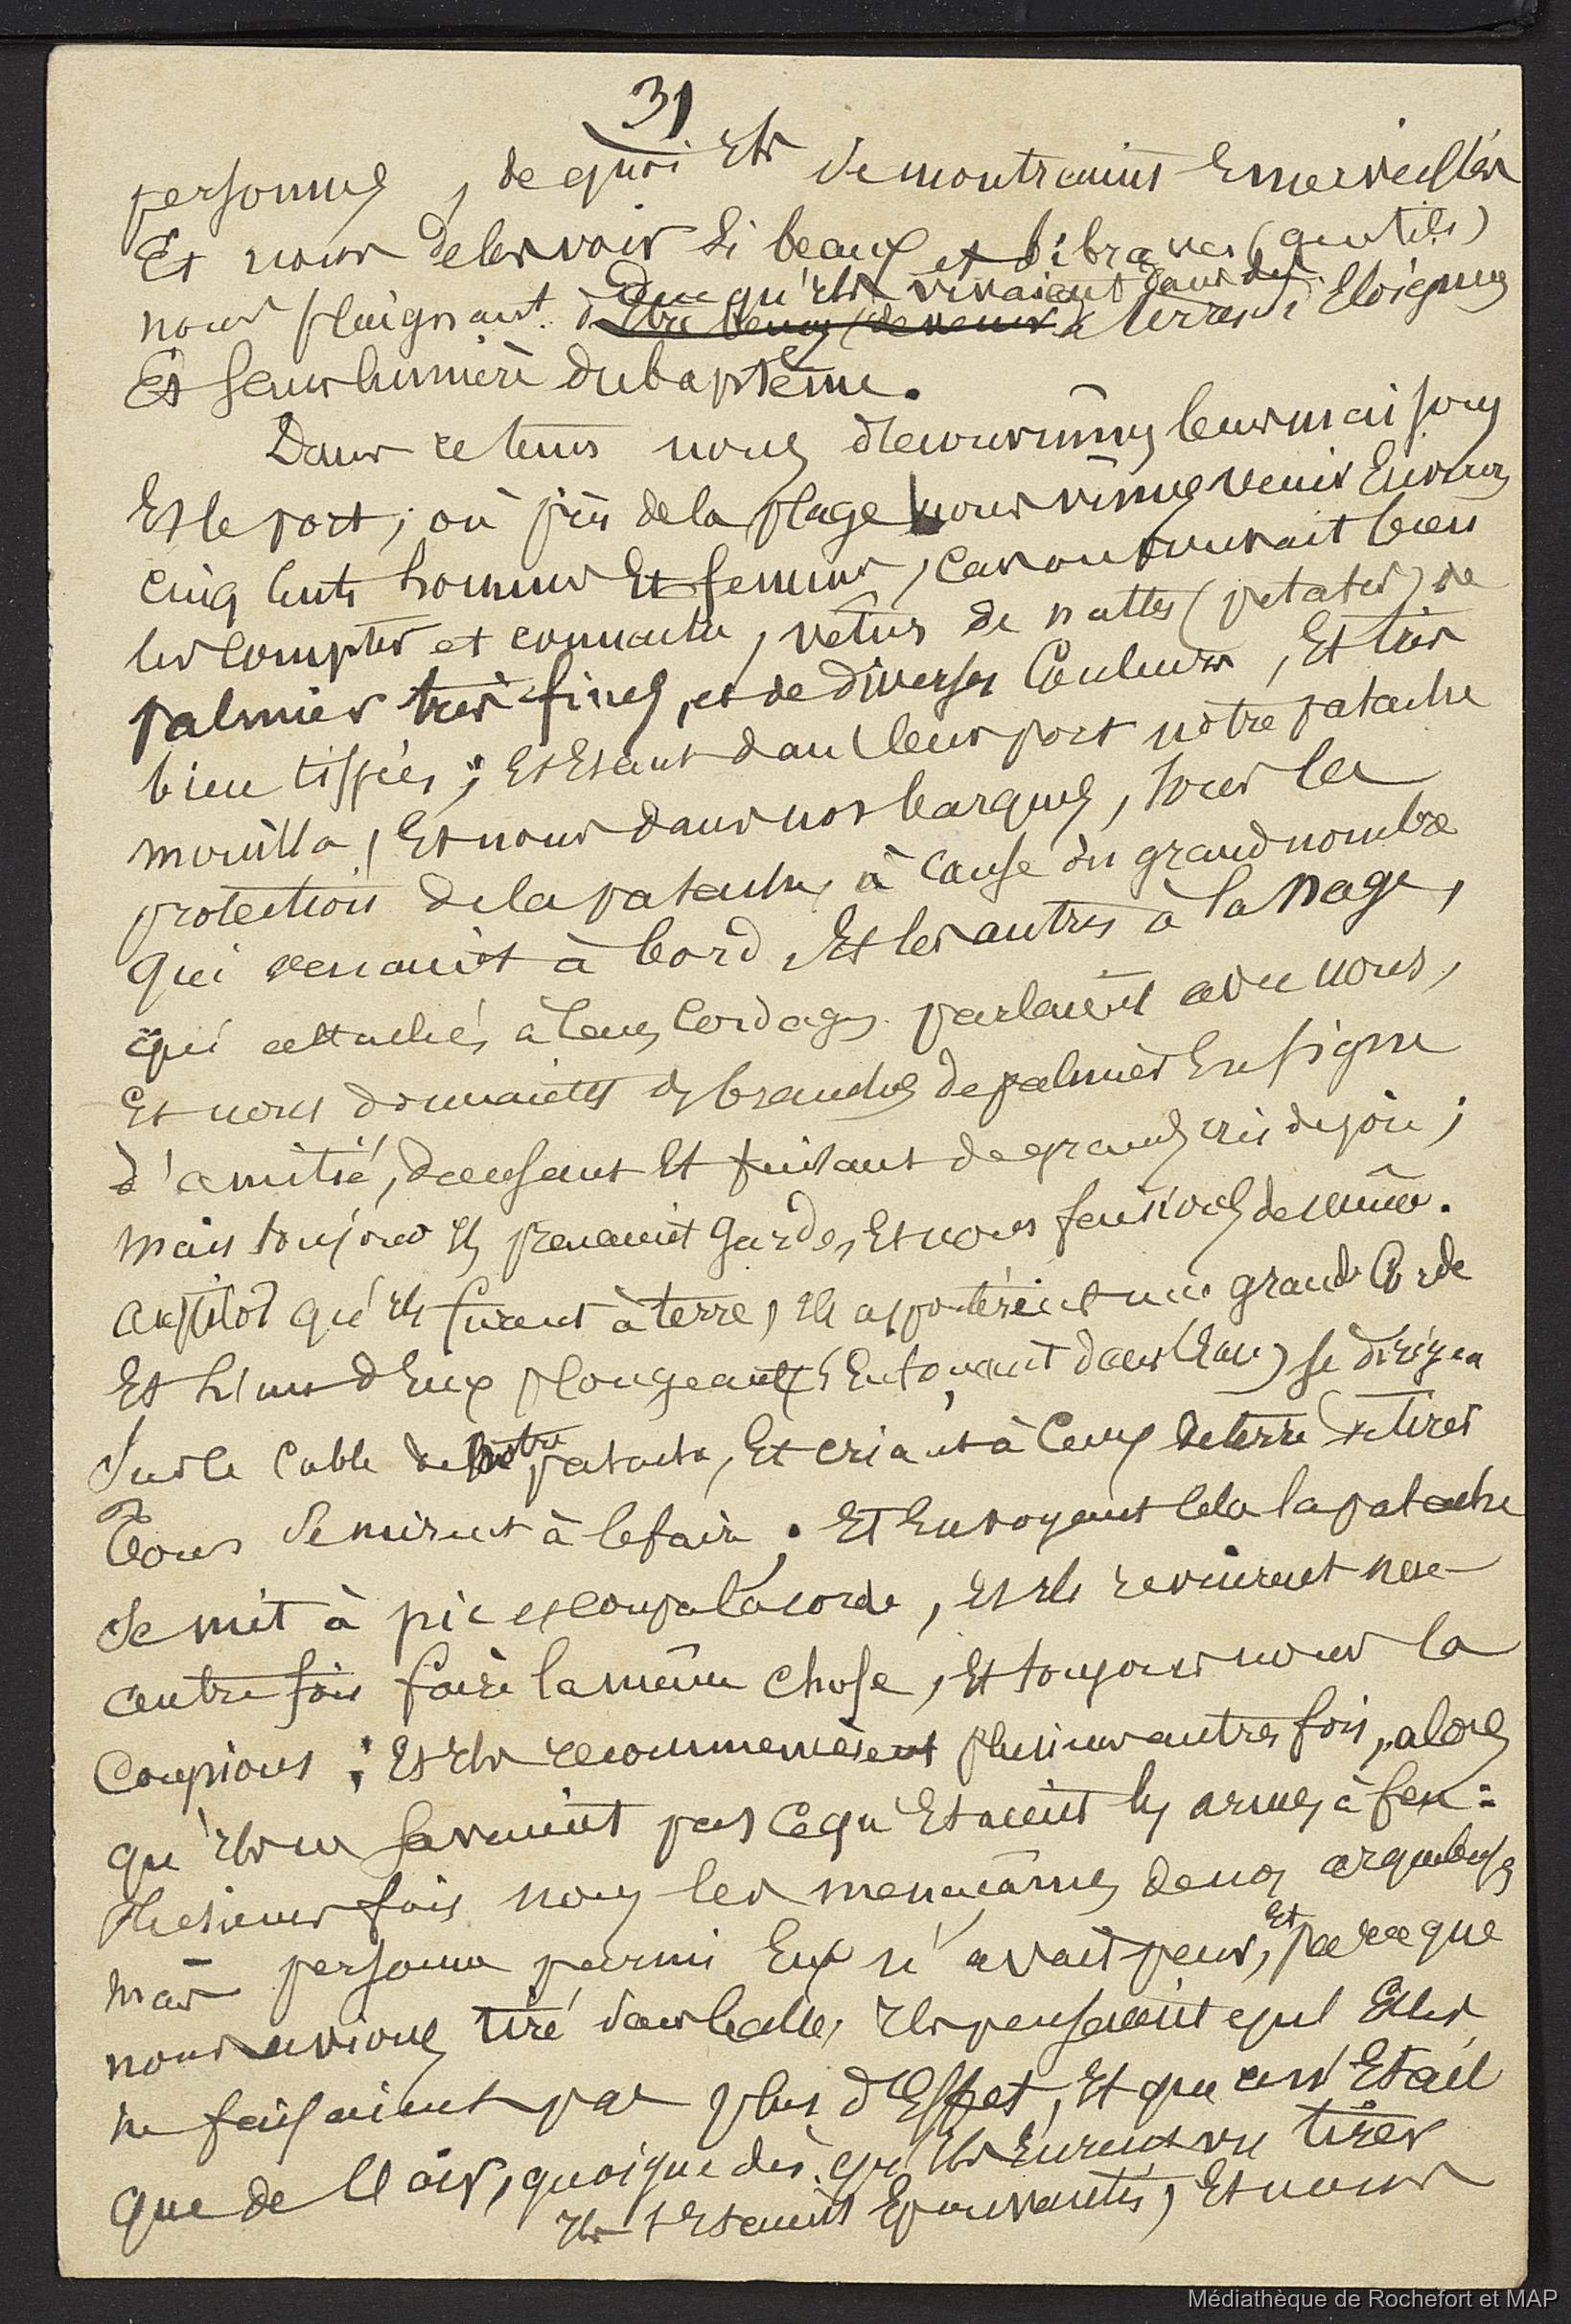 31
personnes, de quoi ils se montraient Emerveillés
Et nous de les voir si beaux et si braves (gentils)
nous plaignant de ce qu'ils vivaient dans des terres si Eloignées
Et sans lumière du baptême.
Dans ce tems nous découvrîmes leurs maisons
Et le port; où près de la plage nous vîmes venir Environ
cinq cents hommes Et femmes, car on pouvait bien
les compter et connaitre, vêtus de nattes (petates) de
palmier très fines, et de diverses Couleurs, Et très
bien tissées; Et Etant dans leur port notre patache
mouilla, Et nous dans nos barques, sous la
protection de la patache, à cause du grand nombre
qui venaient à bord, Et les autres à la nage,
qui attachés à leurs Cordages parlaient avec nous,
Et nous donnaient des branches de palmier En signe
d'amitié, dansant Et faisant de grands cris de joie;
mais toujours ils prenaient garde, Et nous faisions de même.
aussitôt qu'ils furent à terre, ils apportèrent une grande Corde
Et l'un d'Eux plongeant (Entonant dans l'Eau) se dirigea
sur le Cable de notre patache, Et criant à Ceux de terre de tirer
Tous se mirent à le faire; Et En voyant cela la patache
se mit à pic et coupa la corde, et ils revinrent une
autre fois faire la même chose, Et toujours nous la
coupions; Et ils recommencèrent plusieurs autres fois, alors
qu'ils ne savaient pas ce qu'Etaient les armes à feu:
plusieurs fois nous les menaçâmes de nos arquebuses
mais personne parmi Eux n'avait peur, Et parceque
nous avions tiré sans balle, ils pensaient qu'Elles
ne faisaient pas plus d'Effet, Et que ce n'Etait
que de l'air, quoique dès qu'ils Eurent vu tirer
ils s'Etaient Epouvantés, Et nous
Médiathèque de Rochefort et MAP